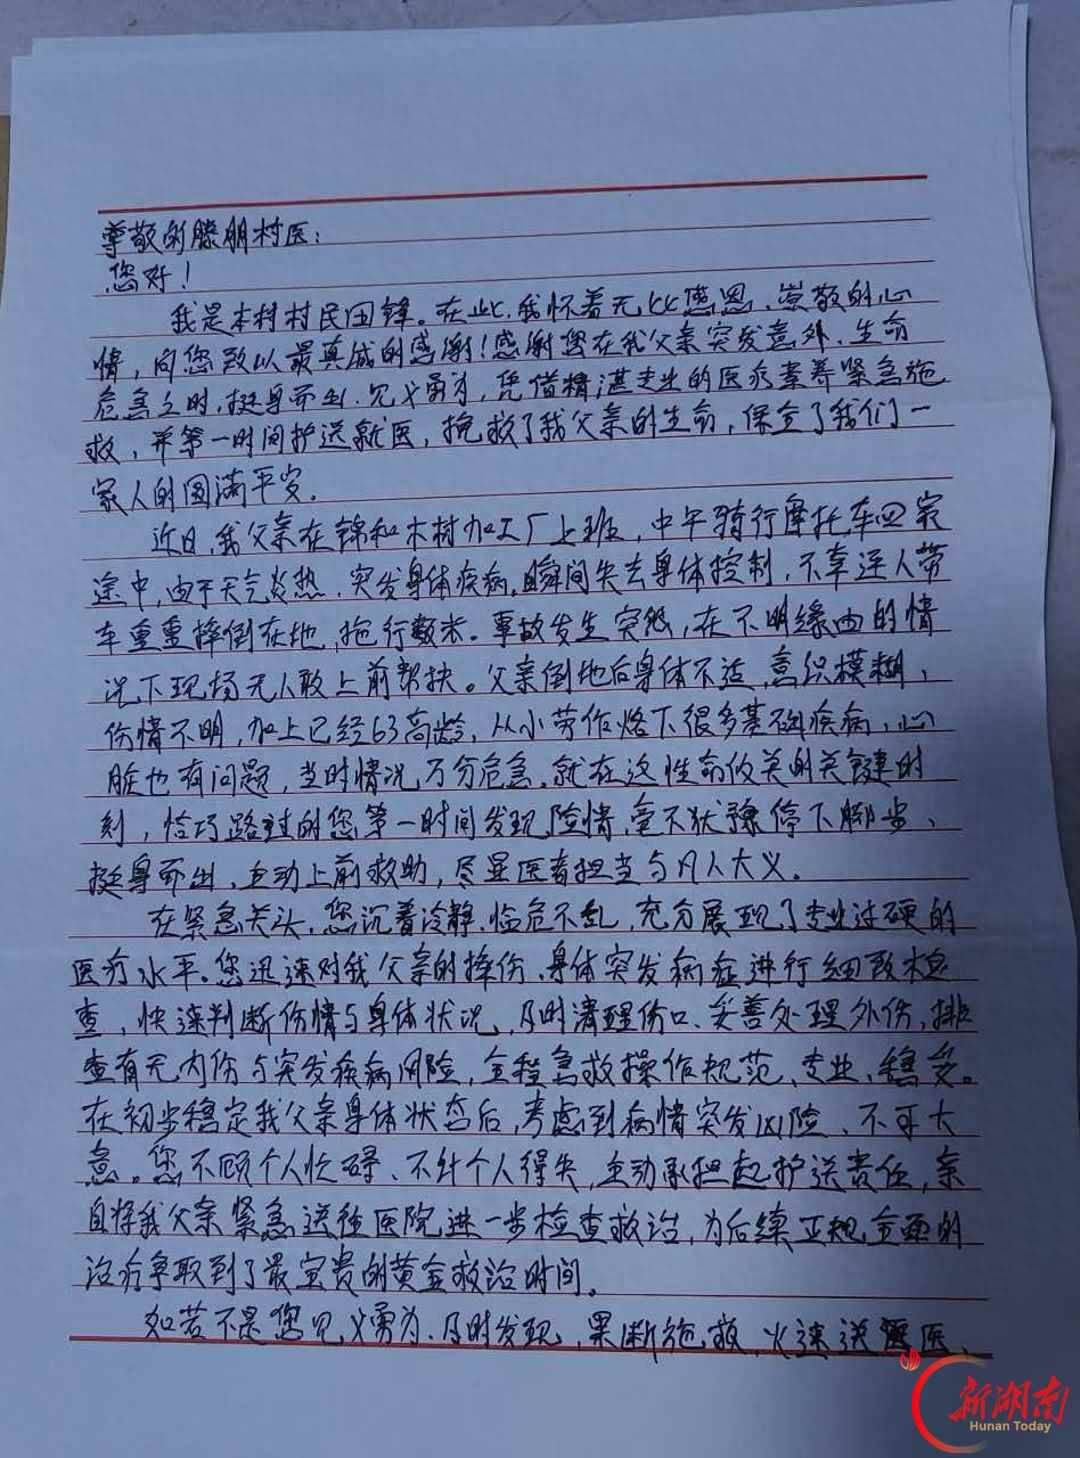 尊敬的滕朋村医：
您好！
我是本村村民田锋。在此，我怀着无比感恩、崇敬的心
情，向您致以最真诚的感谢！感谢您在我父亲突发意外、生命
危急之时，挺身而出、见义勇为，凭借精湛专业的医疗素养紧急施
救，并第一时间护送就医，挽救了我父亲的生命，保全了我们一
家人的圆满平安。
近日，我父亲在锦和木材加工厂上班，中午骑行摩托车回家
途中，由于天气炎热，突发身体疾病，瞬间失去身体控制，不幸连人带
车重重摔倒在地，拖行数米。事故发生突然，在不明缘由的情
况下现场无人敢上前帮扶。父亲倒地后身体不适，意识模糊，
伤情不明，加上已经63高龄，从小劳作烙下很多基础疾病，心
脏也有问题，当时情况万分危急。就在这性命攸关的关键时
刻，恰巧路过的您第一时间发现险情，毫不犹豫停下脚步、
挺身而出、主动上前救助，尽显医者担当与凡人大义。
在紧急关头，您沉着冷静、临危不乱，充分展现了专业过硬的
医疗水平。您迅速对我父亲的摔伤、身体突发病症进行细致检
查，快速判断伤情与身体状况，及时清理伤口、妥善处理外伤，排
查有无内伤与突发疾病风险，全程急救操作规范、专业、稳妥。
在初步稳定我父亲身体状态后，考虑到病情突发凶险、不可大
意。您不顾个人忙碌、不计个人得失，主动承担起护送责任，亲
自将我父亲紧急送往医院进一步检查救治，为后续正规全面的
治疗争取到了最宝贵的黄金救治时间。
如若不是您见义勇为、及时发现，果断施救，火速送医、
新湖南
Hunan Today